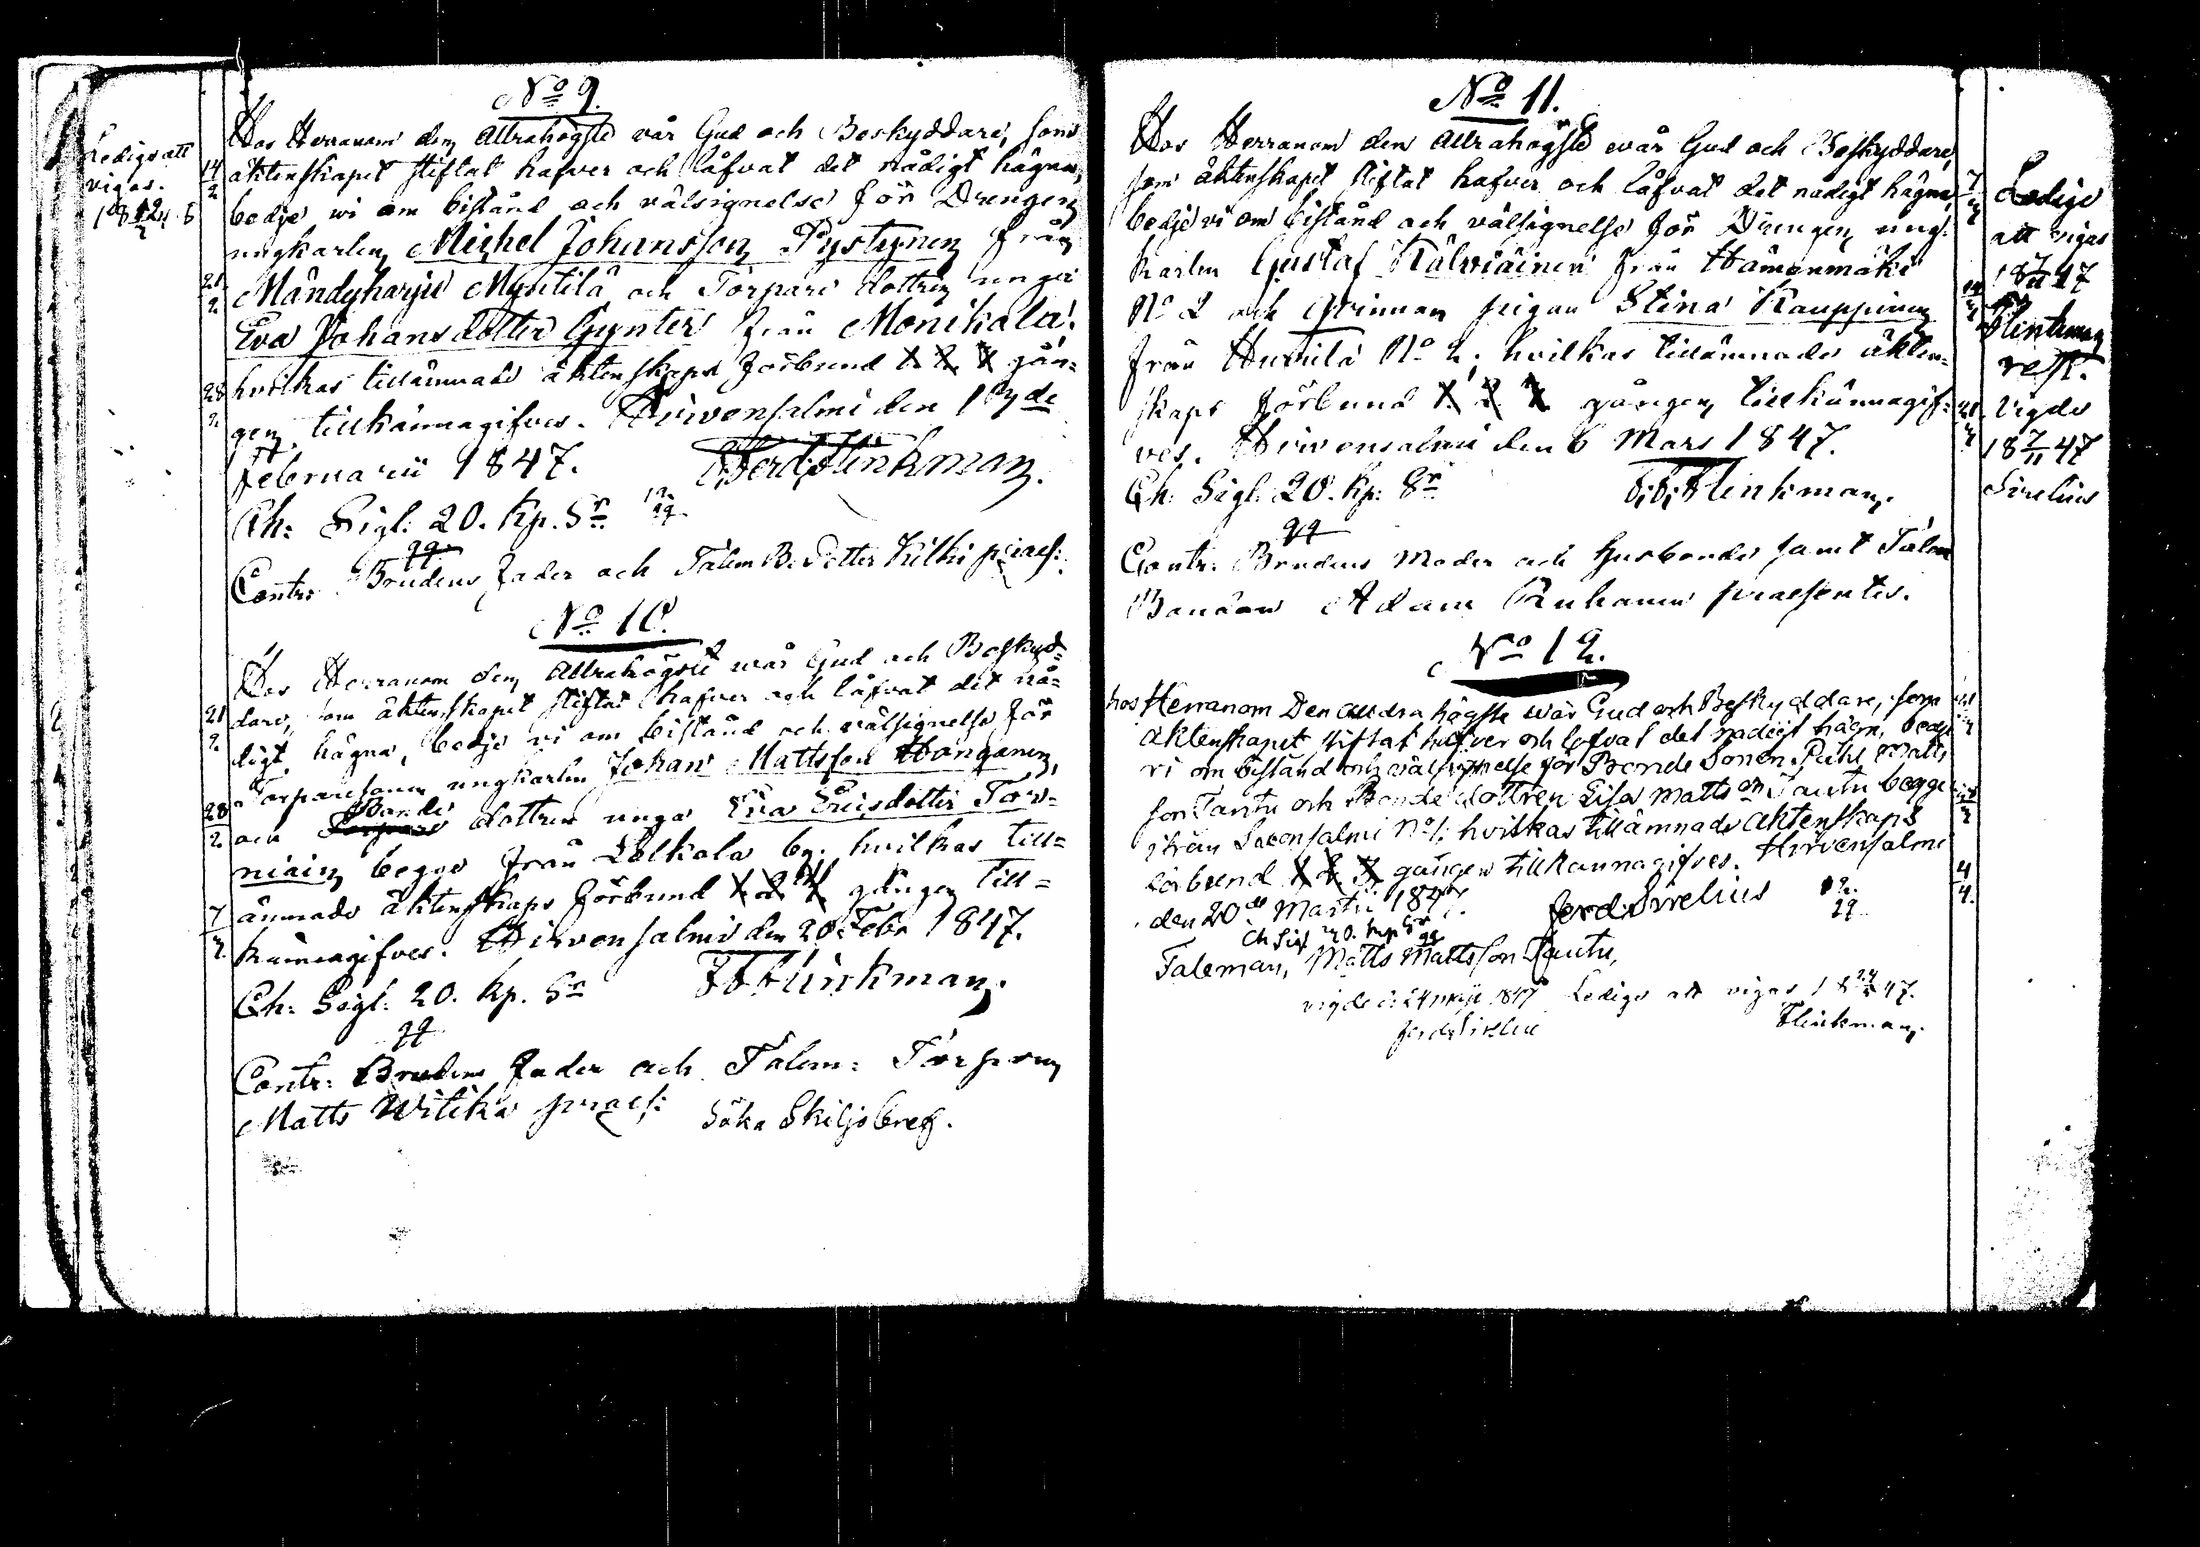 No 9.
Hos Herranom den Allrahögste vår Gud och Beskyddare, som
äktenskapet stiftat hafver och låfvat det nådigt hägna,
bedje wi om bistånd och välsignelse för Drengen
ungkarlen Michel Johansson Pystynen från
Mändyharju Myntilä och Torpare dottren unga
Eva Johansdotter Gynter från Monikala.
hvilkas tillämnade äktenskaps förbund 1. 2. 3 gån-
gen tillkännagifves. Hirvensalmi den 13de
Februarii 1847. Ferd. Flinkman.
Ch: Sigl: 20. Kp. Sr
Contr: Brudens fader och Talem B. Petter Kilki præs:
Ledige att
vigas.
14
2
21
2
28
2
No 10.
Hos Herranom den Allrahögste wår Gud och Beskyd-
dare, som äktenskapet stiftat hafver och låfvat det nå-
digt hägna, bedje vi om bistånd och välsignelse för
Torparesonen ungkarlen Johan Mattsson Hanganen,
och Bonde dottren unga Eva Ericsdotter Tor-
niain begge från Lelkola by. hvilkas till-
ämnade äktenskaps förbund 1. 2. 3 gången till-
kännagifves. Hirvensalmi den 20 Febr 1847.
Ch: Sigl: 20. Kp. Sr Flinkman.
Contr: Brudens fader och Talem: Torparen
Matts Witika præs: Söka Skiljobref.
21
2
28
2
7
3
No 11.
Hos Herranom den Allrahögste wår Gud och Beskyddare,
som äktenskapet stiftat hafver och låfvat det nådigt hägna,
bedje vi om bistånd och välsignelse för Drengen ung-
karlen Gustaf Kälviäinen från Hämenmäki
No 2 och Qvinnan pigan Stina Kauppinen
från Huttila No 2, hvilkas tillämnade äkten-
skaps förbund 1. 2. 3 gången tillkännagif-
ves. Hirvensalmi den 6 Mars 1847.
Ch: Sigl: 20. Kp: Sr Flinkman.
Contr: Brudens Moder och Husbonde samt Talem
Bonden Adam Ruhanen præsentes.
Ledige
att vigas
18 7/11 47
Flinkman
Vigde
18 7/11 47
Sirelius
No 12.
hos Herranom Den Alldra högste wår Gud och Beskyddare, som
Äktenskapet stiftat hafver och lofvat det nådigt hägn, bedje
vi om bistånd och välsignelse för Bonde Sonen Matts
son Tantu och Bonde dottren Lisa Matts dr Tantu begge
ifrån No 1. hvilkas tillämnade äktenskaps
förbund 1. 2. 3. gången tillkännagifves. Hirvensalmi
den 20de Martii 1847. Ferd. Sirelius
Ch Sigl 20. kp Sr
Taleman, Matts Mattsson Tantu,
vigde d: 24 Maji 1847 Ledige att vigas 18 47.
Ferd. Sirelius Flinkman.
4
4.